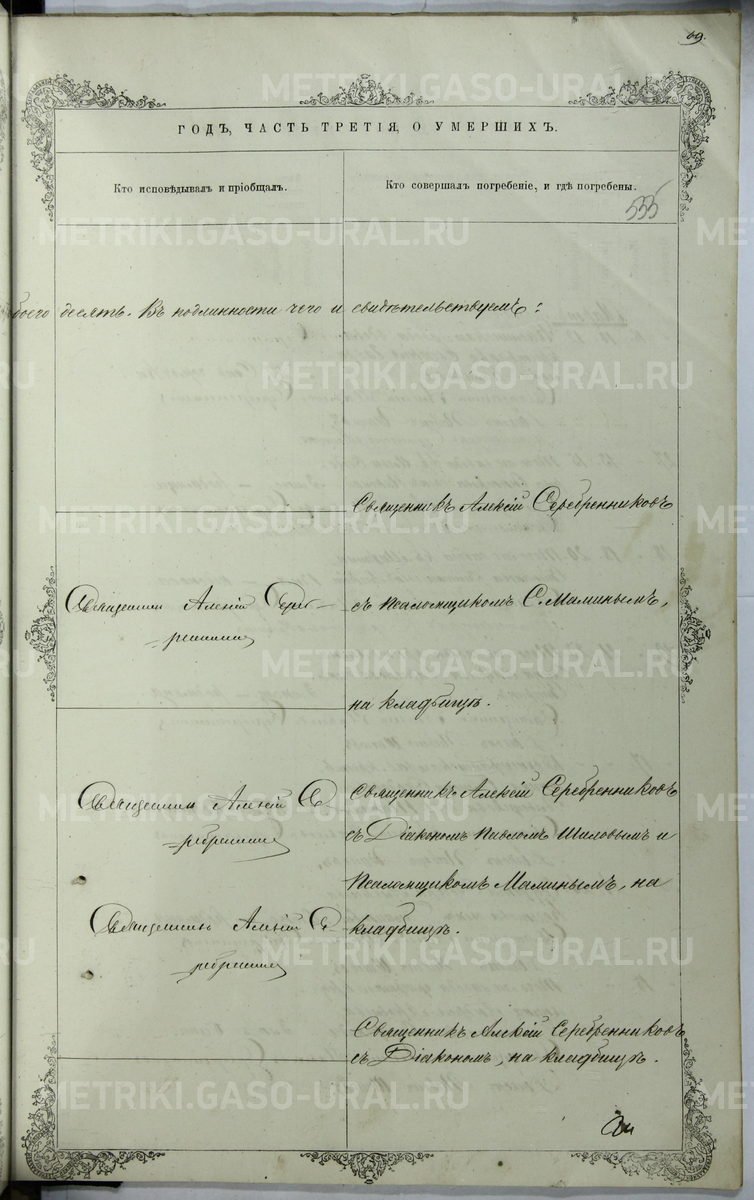 69.
ГОДЪ, ЧАСТЬ ТРЕТІЯ, О УМЕРШИХЪ.
Кто исповѣдывалъ и пріобщалъ.
Кто совершалъ погребеніе, и гдѣ погребены.
535
боего десять. Въ подлинности чего и свидѣтельствуемъ:
Священникъ Алексій Серебренниковъ
Священникъ Алексій Сереб-
съ Псаломщикомъ С. Маминымъ,
-ренников
на кладбищѣ.
Священникъ Алексій Се-
Священникъ Алексій Серебренниковъ
-ребренников
съ Діакономъ Павломъ Шиловымъ и
Псаломщикомъ Маминымъ, на
Священникъ Алексій Се-
кладбищѣ.
-ребренников
Священникъ Алексій Серебренниковъ
съ Діакономъ, на кладбищѣ.
METRIKI.GASO-URAL.RU